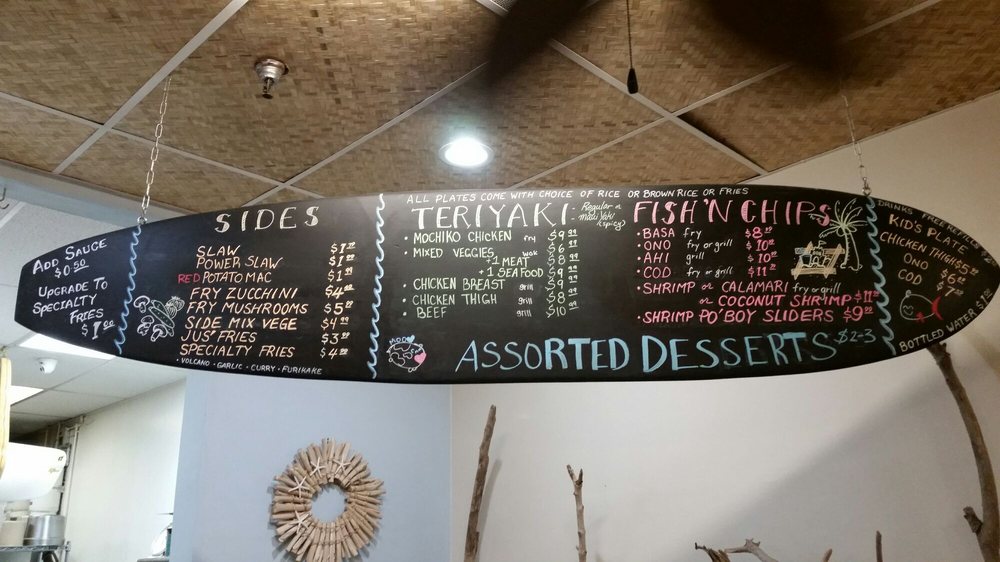 ADD SAUCE
$0.50
UPGRADE TO
SPECIALTY
FRIES
$1.00
SIDES
SLAW
POWER SLAW
RED POTATO MAC $1.99
FRY ZUCCHINI $4.99
FRY MUSHROOMS $5.99
SIDE MIX VEGE $4.99
JUS' FRIES $3.99
SPECIALTY FRIES $4.99
• VOLCANO • GARLIC • CURRY • FURIKAKE
ALL PLATES COME WITH CHOICE OF RICE OR BROWN RICE OR FRIES
TERIYAKI - Regular or
Maui Yaki
(spicy)
• MOCHIKO CHICKEN fry $9.99
• MIXED VEGGIES wok $6.99
+1 MEAT $8.99
+1 SEAFOOD $9.99
• CHICKEN BREAST grill $9.99
• CHICKEN THIGH grill $8.99
• BEEF grill $10.99
FISH 'N CHIPS
• BASA fry
• ONO fry or grill
• AHI grill
• COD fry or grill
• SHRIMP or CALAMARI fry or grill
or COCONUT SHRIMP
• SHRIMP PO'BOY SLIDERS $9.99
ASSORTED DESSERTS $2-3
DRINKS FREE REFILLS
KID'S PLATE
CHICKEN THIGH
ONO
COD
BOTTLED WATER